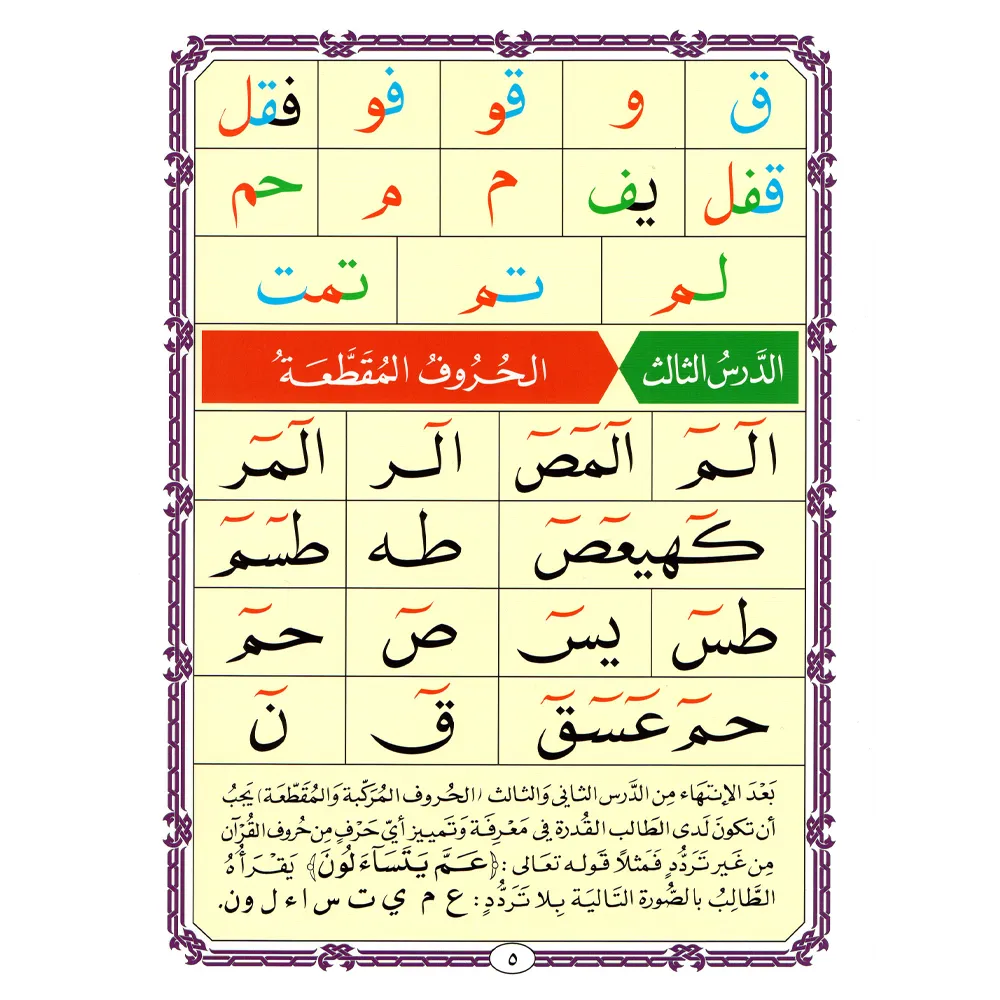 ق و قو فو فقل
قفل يف م م حم
لم تم تمت
الدَّرسُ الثالث الحُرُوفُ المُقَطَّعَةُ
الٓمٓ الٓمٓصٓ الٓر الٓمٓر
كٓهيعٓصٓ طه طسٓمٓ
طسٓ يسٓ صٓ حمٓ
حمٓ عٓسٓقٓ قٓ نٓ
بَعْدَ الإنتهَاء مِن الدَّرس الثاني وَالثالث (الحُروف المُرَكّبة وَالمُقَطّعَة) يَجبُ
أن تكونَ لَدى الطَالب القُدرة في مَعْرِفَة وَتَمييز أيّ حَرْفٍ مِن حُروف القُرآن
مِن غَير تَردُّدٍ فَمَثلًا قَوله تعَالى :﴿عَمَّ يَتَسَآءَلُونَ﴾ يَقْرَأهُ
الطَّالِبُ بالصُّورة التَاليَة بِلا تَرَدُّدٍ: ع م ي ت س ا ء ل و ن.
٥